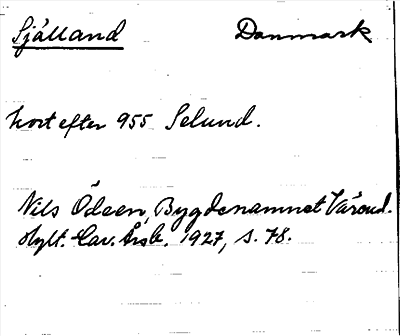 Själland Danmark
kort efter 955 Selund.
Nils Ödeen, Bygdenamnet Värend.
Hylt. Cav. Årsb. 1927, s. 78.